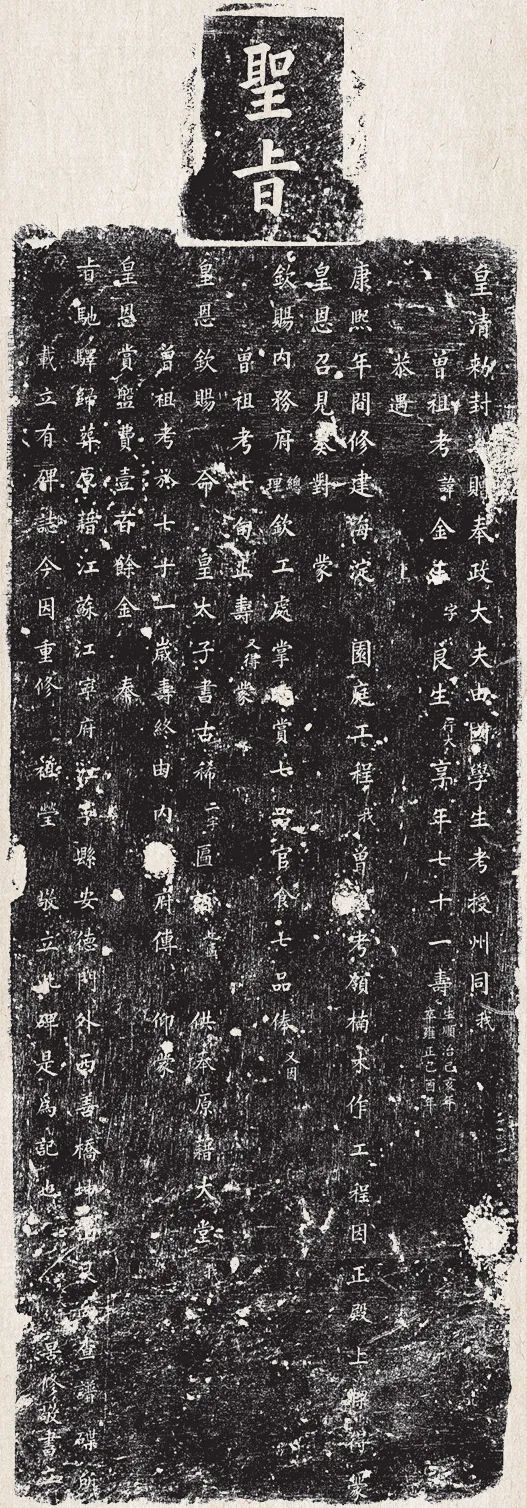 聖旨
皇清勅封 贈奉政大夫由國學生考授州同我
曾祖考諱金玉字良生行大享年七十一壽生順治己亥年卒雍正己酉年
恭遇
康熙年間修建海淀 園庭工程我曾祖考領楠木作工程因正殿上樑得蒙
皇恩召見奏對 蒙
欽賜內務府總理欽工處掌 賞七品官食七品俸又因
曾祖考七旬正壽又得蒙
皇恩欽賜 命 皇太子書古稀二字匾額 供奉原籍大堂
曾祖考於七十一歲壽終由內 府傳 仰蒙
皇恩賞盤費壹百餘金 奉
旨馳驛歸葬原籍江蘇江寧府江寧縣安德門外西善橋 查譜碟所
載立有碑誌今因重修 祖塋 敬立此碑是為記也 景修敬書立